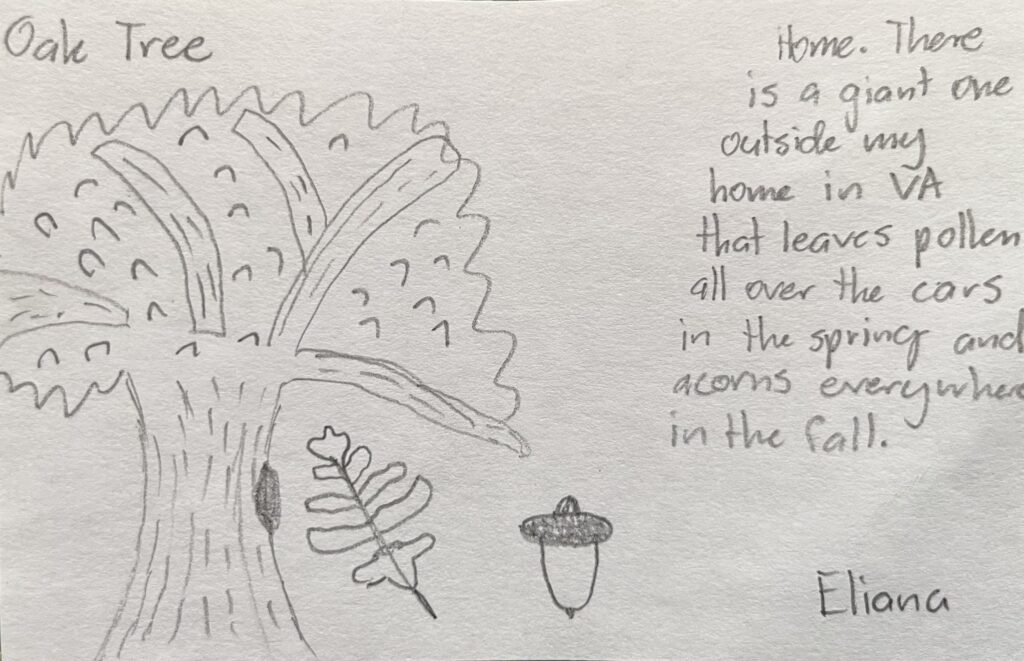 Oak Tree
Home. There
is a giant one
outside my
home in VA
that leaves pollen
all over the cars
in the spring and
acorns everywhere
in the fall.
Eliana